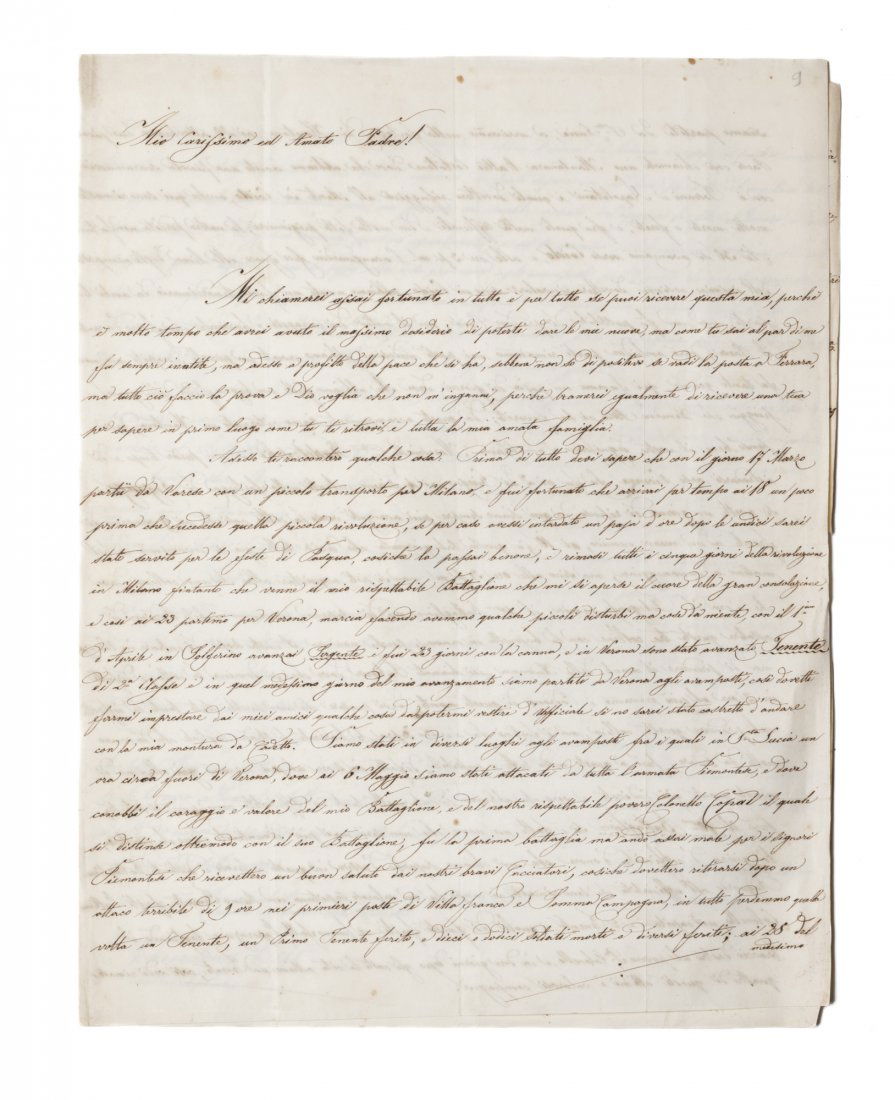 9
Mio Carissimo ed Amato Padre!
Mi chiamerei assai fortunato in tutto e per tutto se puoi ricevere questa mia, perchè
è molto tempo che avrei avuto il massimo desiderio di poterti dare le mie nuove, ma come tu sai al par di me
fu sempre inutile, ma adesso a profitto della pace che si ha, sebbene non so di positivo se vadi la posta a Ferrara,
ma tutto ciò faccio la prova e Dio voglia che non m'inganni, perchè bramerei egualmente di ricevere una tua
per sapere in primo luogo come tu ti ritrovi e tutta la mia amata famiglia.
Adesso ti racconterò qualche cosa. Prima di tutto devi sapere che con il giorno 17 Marzo
partii da Varese con un piccolo transporto per Milano, e fui fortunato che arrivai per tempo ai 18 un poco
prima che succedesse quella piccola rivoluzione, se per caso avessi intardato un pajo d'ore dopo le undici sarei
stato servito per le feste di Pasqua, cosichè la passai benone, e rimasi tutti i cinque giorni della rivoluzione
in Milano fintanto che venne il mio rispettabile Battaglione che mi si aperse il cuore della gran consolazione,
e così ai 23 partimo per Verona, marcia facendo avemmo qualche piccoli disturbi ma cose da niente, con il 1mo
d'Aprile in Solferino avanzai Sergente e fui 23 giorni con la canna, e in Verona sono stato avanzato Tenente
di 2da Classe e in quel medesimo giorno del mio avanzamento siamo partiti da Verona agli avamposti, così dovetti
farmi imprestare dai miei amici qualche cosa da potermi vestire d'Ufficiale si no sarei stato costretto d'andare
con la mia montura da Cadetto. Siamo stati in diversi luoghi agli avamposti fra i quali in Sta Lucia un
ora circa fuori di Verona, dove ai 6 Maggio siamo stati attacati da tutta l'armata Piemontese, e dove
conobbi il coraggio e valore del mio Battaglione, e del nostro rispettabile povero Colonello Copal il quale
si distinse oltremodo con il suo Battaglione, fu la prima battaglia ma andò assai male per i signori
Piemontesi che ricevettero un buon saluto dai nostri bravi Cacciatori, cosiche dovettero ritirarsi dopo un
attaco terribile di 9 ore nei primieri posti di Villa franca e Somma Campagna, in tutto perdemmo quella
volta un Tenente, un Primo Tenente ferito, e dieci e dodici soldati morti e diversi feriti; ai 28 del
medesimo